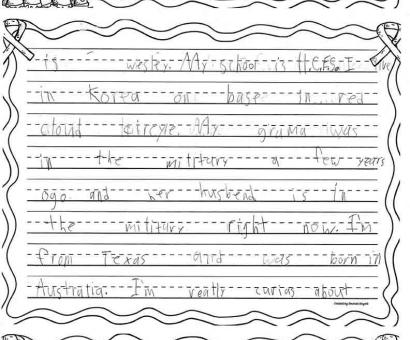 is wesley. My school is H.C.E.S. I live
in Korea on base in red
cloud My grama was
in the militury a few years
ogo and her husbend is in
the militury right now. I'm
from Texas and was born in
Australia. I'm really curias about